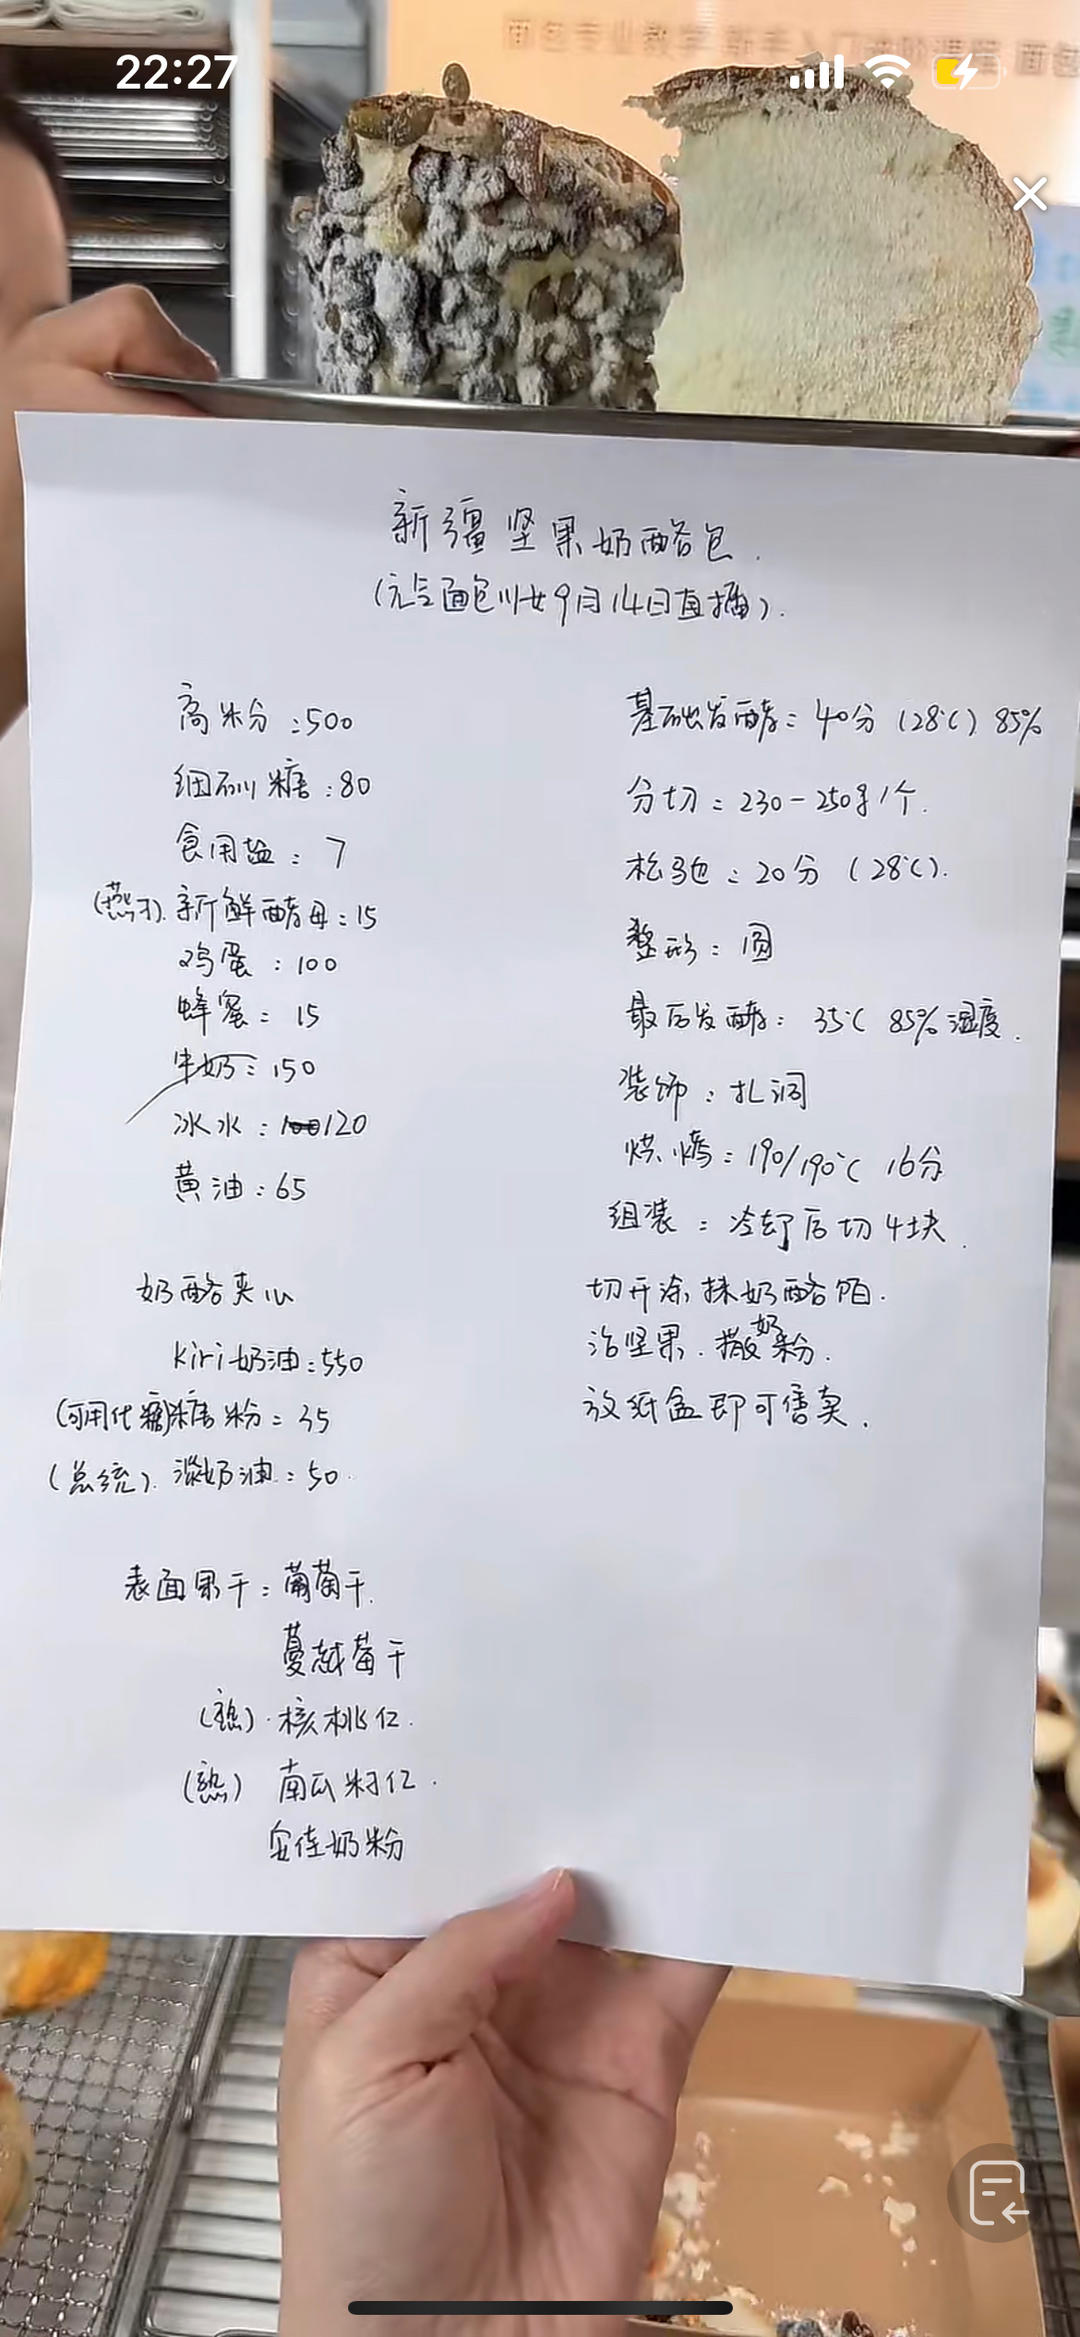 22:27
新疆坚果奶酪包.
(元气面包川女9月14日直播).
高粉:500
细砂糖:80
食用盐:7
(燕子).新鲜酵母:15
鸡蛋:100
蜂蜜:15
牛奶:150
冰水:120
黄油:65
奶酪夹心
kiri奶油:550
(可用代糖)糖粉:35
(总统).淡奶油:50.
表面果干:葡萄干.
蔓越莓干
(熟).核桃仁.
(熟) 南瓜籽仁.
安佳奶粉
基础发酵:40分(28℃)85%
分切:230-250g/个.
松弛:20分(28℃).
整形:圆
最后发酵:35℃ 85%湿度.
装饰:扎洞
烘烤:190/190℃ 16分
组装:冷却后切4块.
切开涂抹奶酪馅.
沾坚果.撒奶粉.
放纸盒即可售卖.